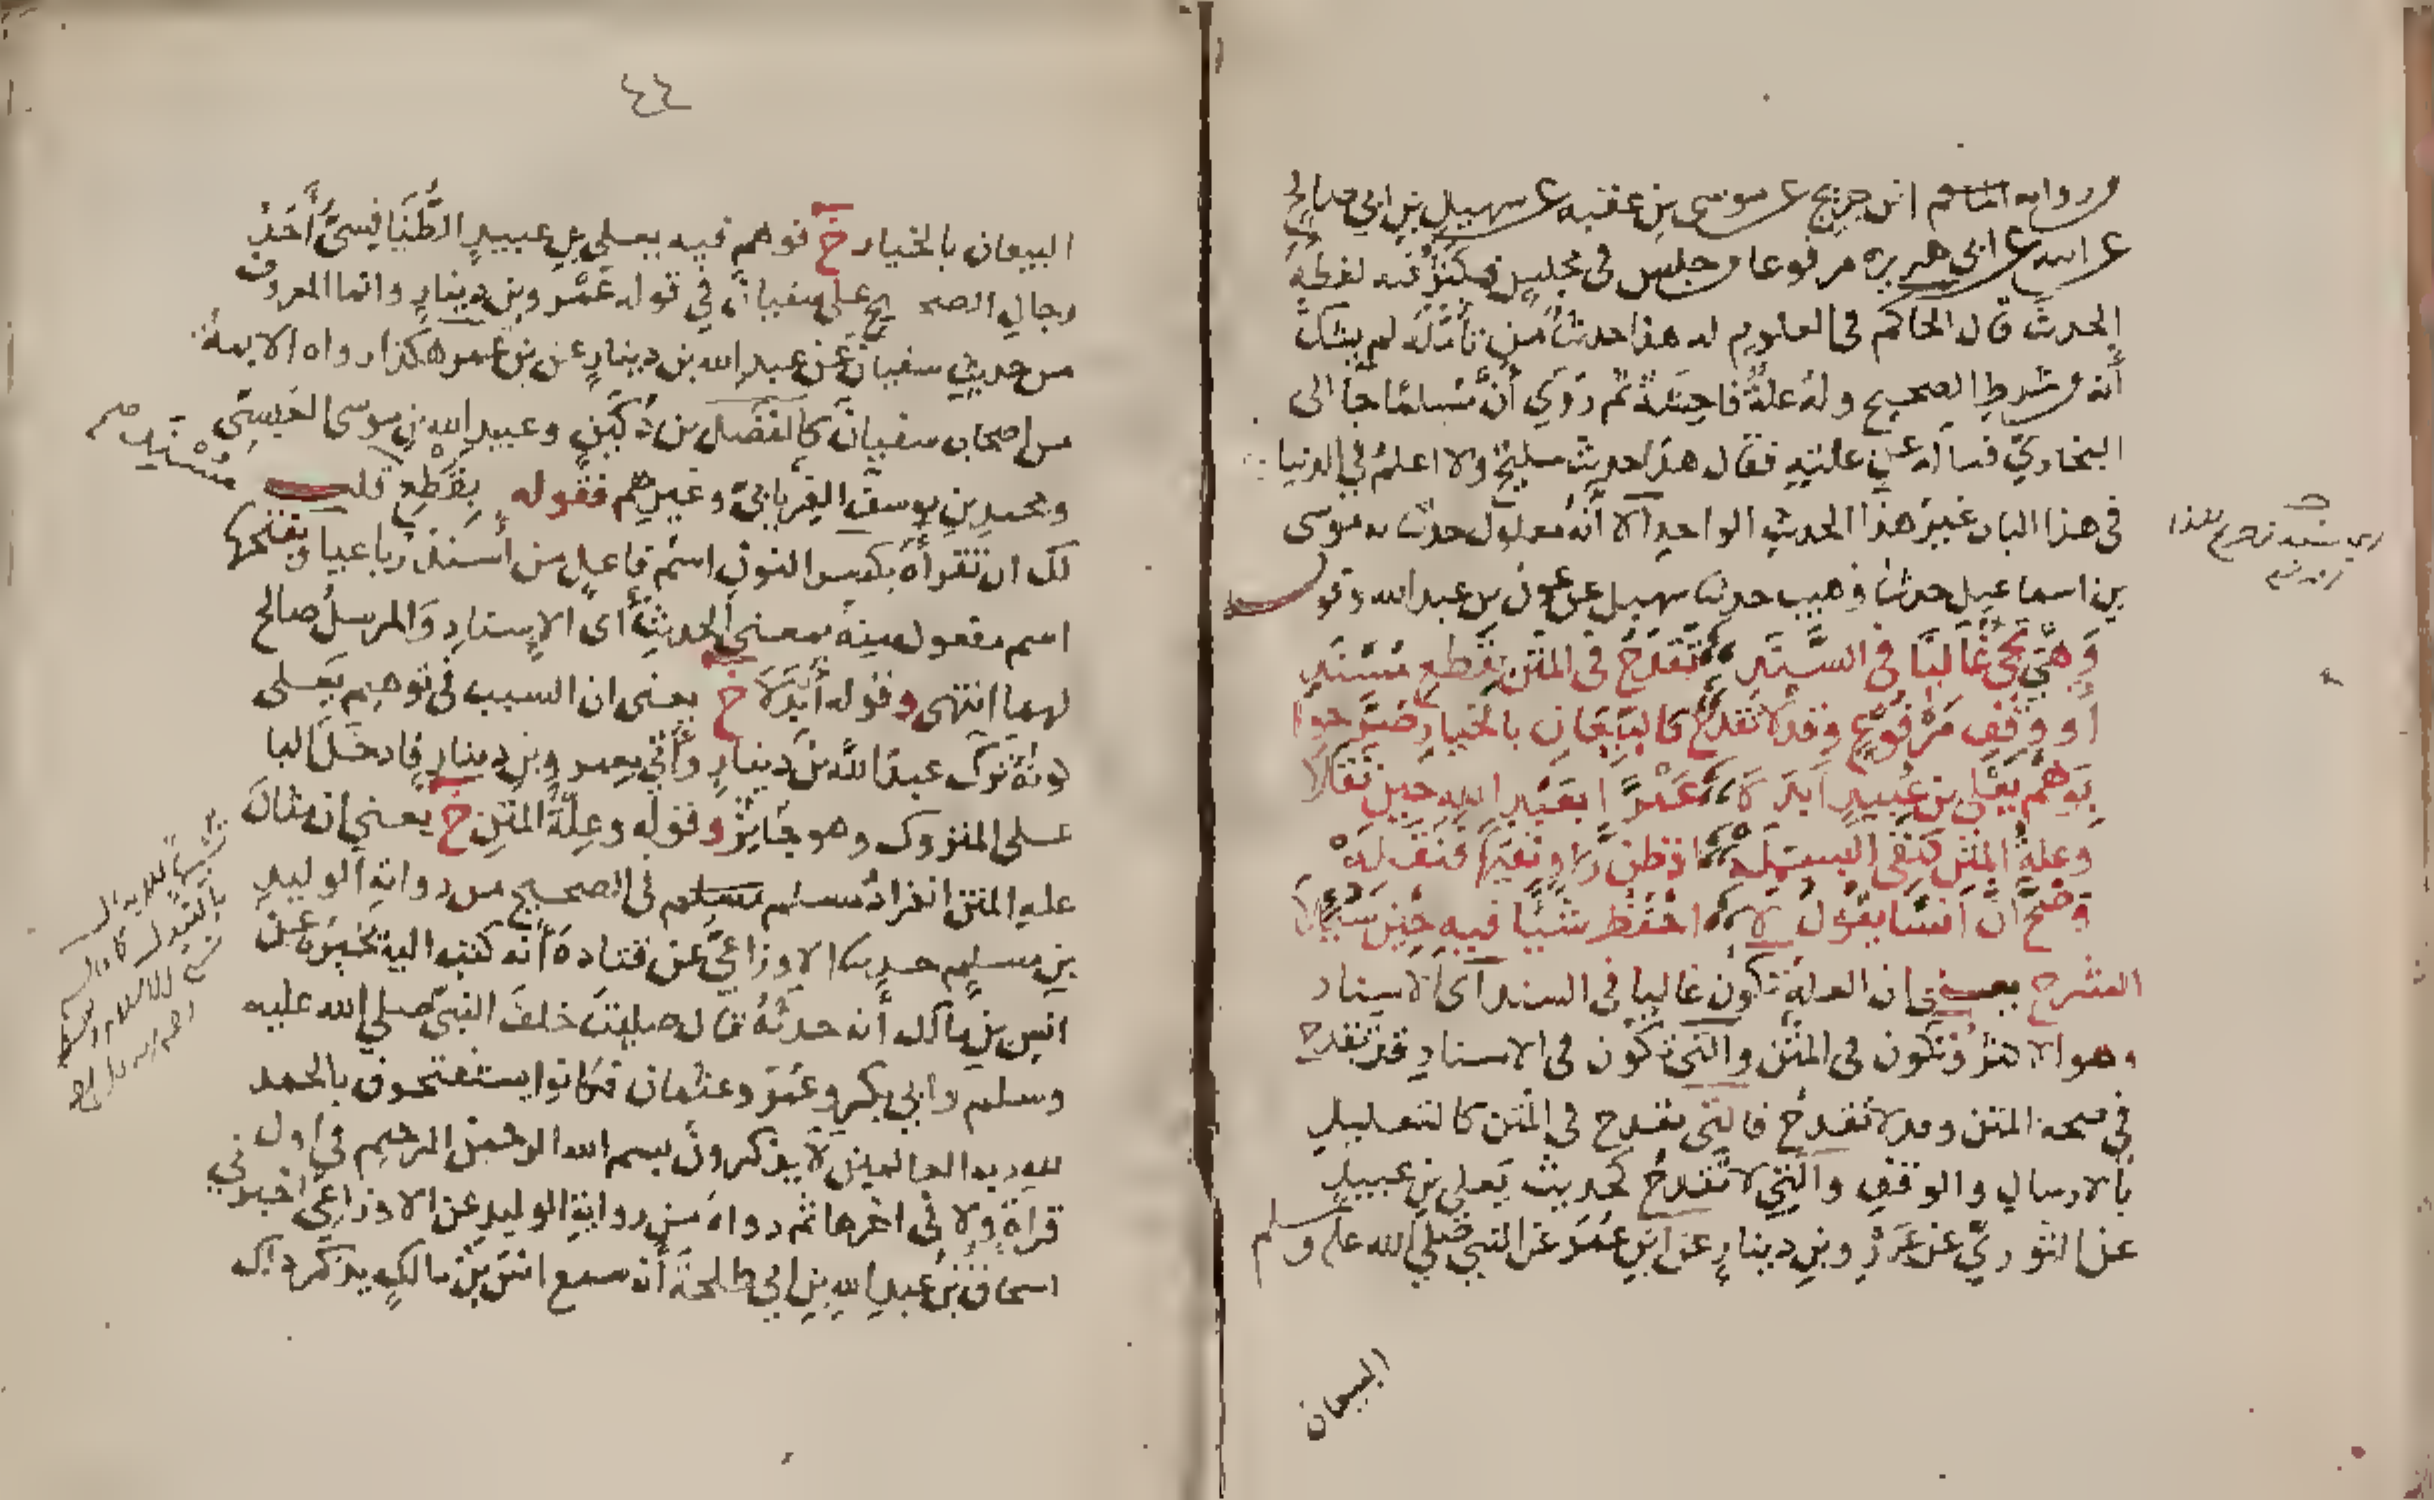 ورواية ابن جريج عن موسى بن عقبة عن سهيل بن ابي صالح
عن ابيه عن ابي هريرة مرفوعا من جلس في مجلس فكثر فيه لغطه
الحديث قال الحاكم في العلوم له هذا حديث من تأمله لم يشك
أنه من شرط الصحيح وله علة فاحشة ثم روي أن مسلما جا الى
البخاري فسأله عن علته فقال هذا حديث مليح ولا اعلم في الدنيا
في هذا الباب غير هذا الحديث الواحد الا أنه معلول حدثنا به موسى
بن اسماعيل حدثنا وهيب حدثنا سهيل عن عون بن عبد الله وقوله
وهي تجي غالبا في السند تقدح في المتن بقطع مسند
أو وقف مرفوع وقد لا تقدح كالبيعان بالخيار صرحوا
بوهم يعلى بن عبيد ابدلا عمرا بعبد الله حين نقلا
وعلة المتن كنفي البسملة اذ ظن راو نفيها فنقله
وصح أن انسا يقول لا احفظ شيئا فيه حين سئلا
الشرح يعني ان العلة تكون غالبا في السند أى الاسناد
وهو الاكثر وتكون في المتن والتي تكون في الاسناد قد تقدح
في صحة المتن وقد لا تقدح فالتي تقدح في المتن كالتعليل
بالارسال والوقف والتي لا تقدح كحديث يعلى بن عبيد
عن الثوري عن عمرو بن دينار عن ابن عمر عن النبي صلى الله عليه وسلم
البيعان
٤٤
البيعان بالخيار خ فوهم فيه يعلى بن عبيد الطنافسي أحد
رجال الصحيح على سفيان في قوله عمرو بن دينار وانما المعروف
من حديث سفيان عن عبد الله بن دينار عن بن عمر هكذا رواه الايمة
من اصحاب سفيان كالفضل بن دكين وعبيد الله بن موسى العبسى
ومحمد بن يوسف الفريابي وغيرهم فقوله بقطع مسند قلت
لك ان تقرأه بكسر النون اسم فاعل من أسند رباعيا وبفتحها
اسم مفعول منه بمعني الحديث أى الإسناد والمرسل صالح
لهما انتهى وقوله أبدلا خ يعنى ان السبب في توهيم يعلى
كونه ترك عبد الله بن دينار وأتي بعمرو بن دينار فادخل البا
على المتروك وهو جايز وقوله وعلة المتن خ يعني ان مثال
علة المتن انفراد مسلم في الصحيح من رواية الوليد
بن مسلم حدثنا الاوزاعي عن قتادة أنه كتب اليه يخبره عن
انس بن مالك أنه حدثه قال صليت خلف النبي صلى الله عليه
وسلم وابي بكر وعمر وعثمان فكانوا يستفتحون بالحمد
لله رب العالمين لا يذكرون بسم الله الرحمن الرحيم في اول
قراة ولا في اخرها ثم رواه من رواية الوليد عن الاوزاعي اخبرني
اسحاق بن عبد الله بن ابي طلحة أنه سمع انس بن مالك يذكر ذلك